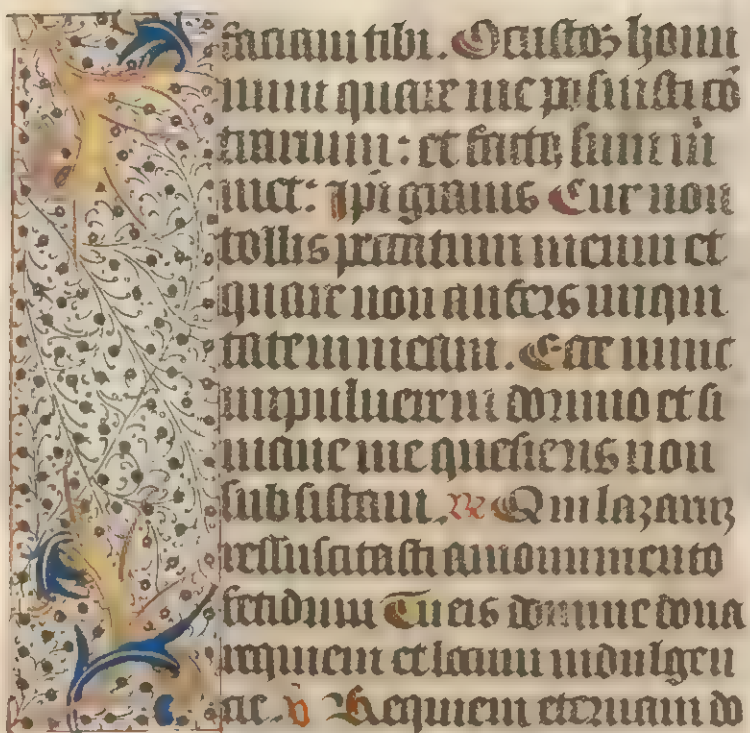 faciam tibi. O custos homi
num quare me posuisti cō
trarium: et factꝰ sum m̄
met: ipi gravis Cur non
tollis peccatum meum et
quare non aufers iniqui
tatem meam. Ecce nunc
in pulvere dormio et si
mane me quesieris non
subsistam. R Qui lazarū
ressuscitasti a monumento
fetidum Tu eis domine dona
requiem et locum indulgen
tie. v Requiem eternam do